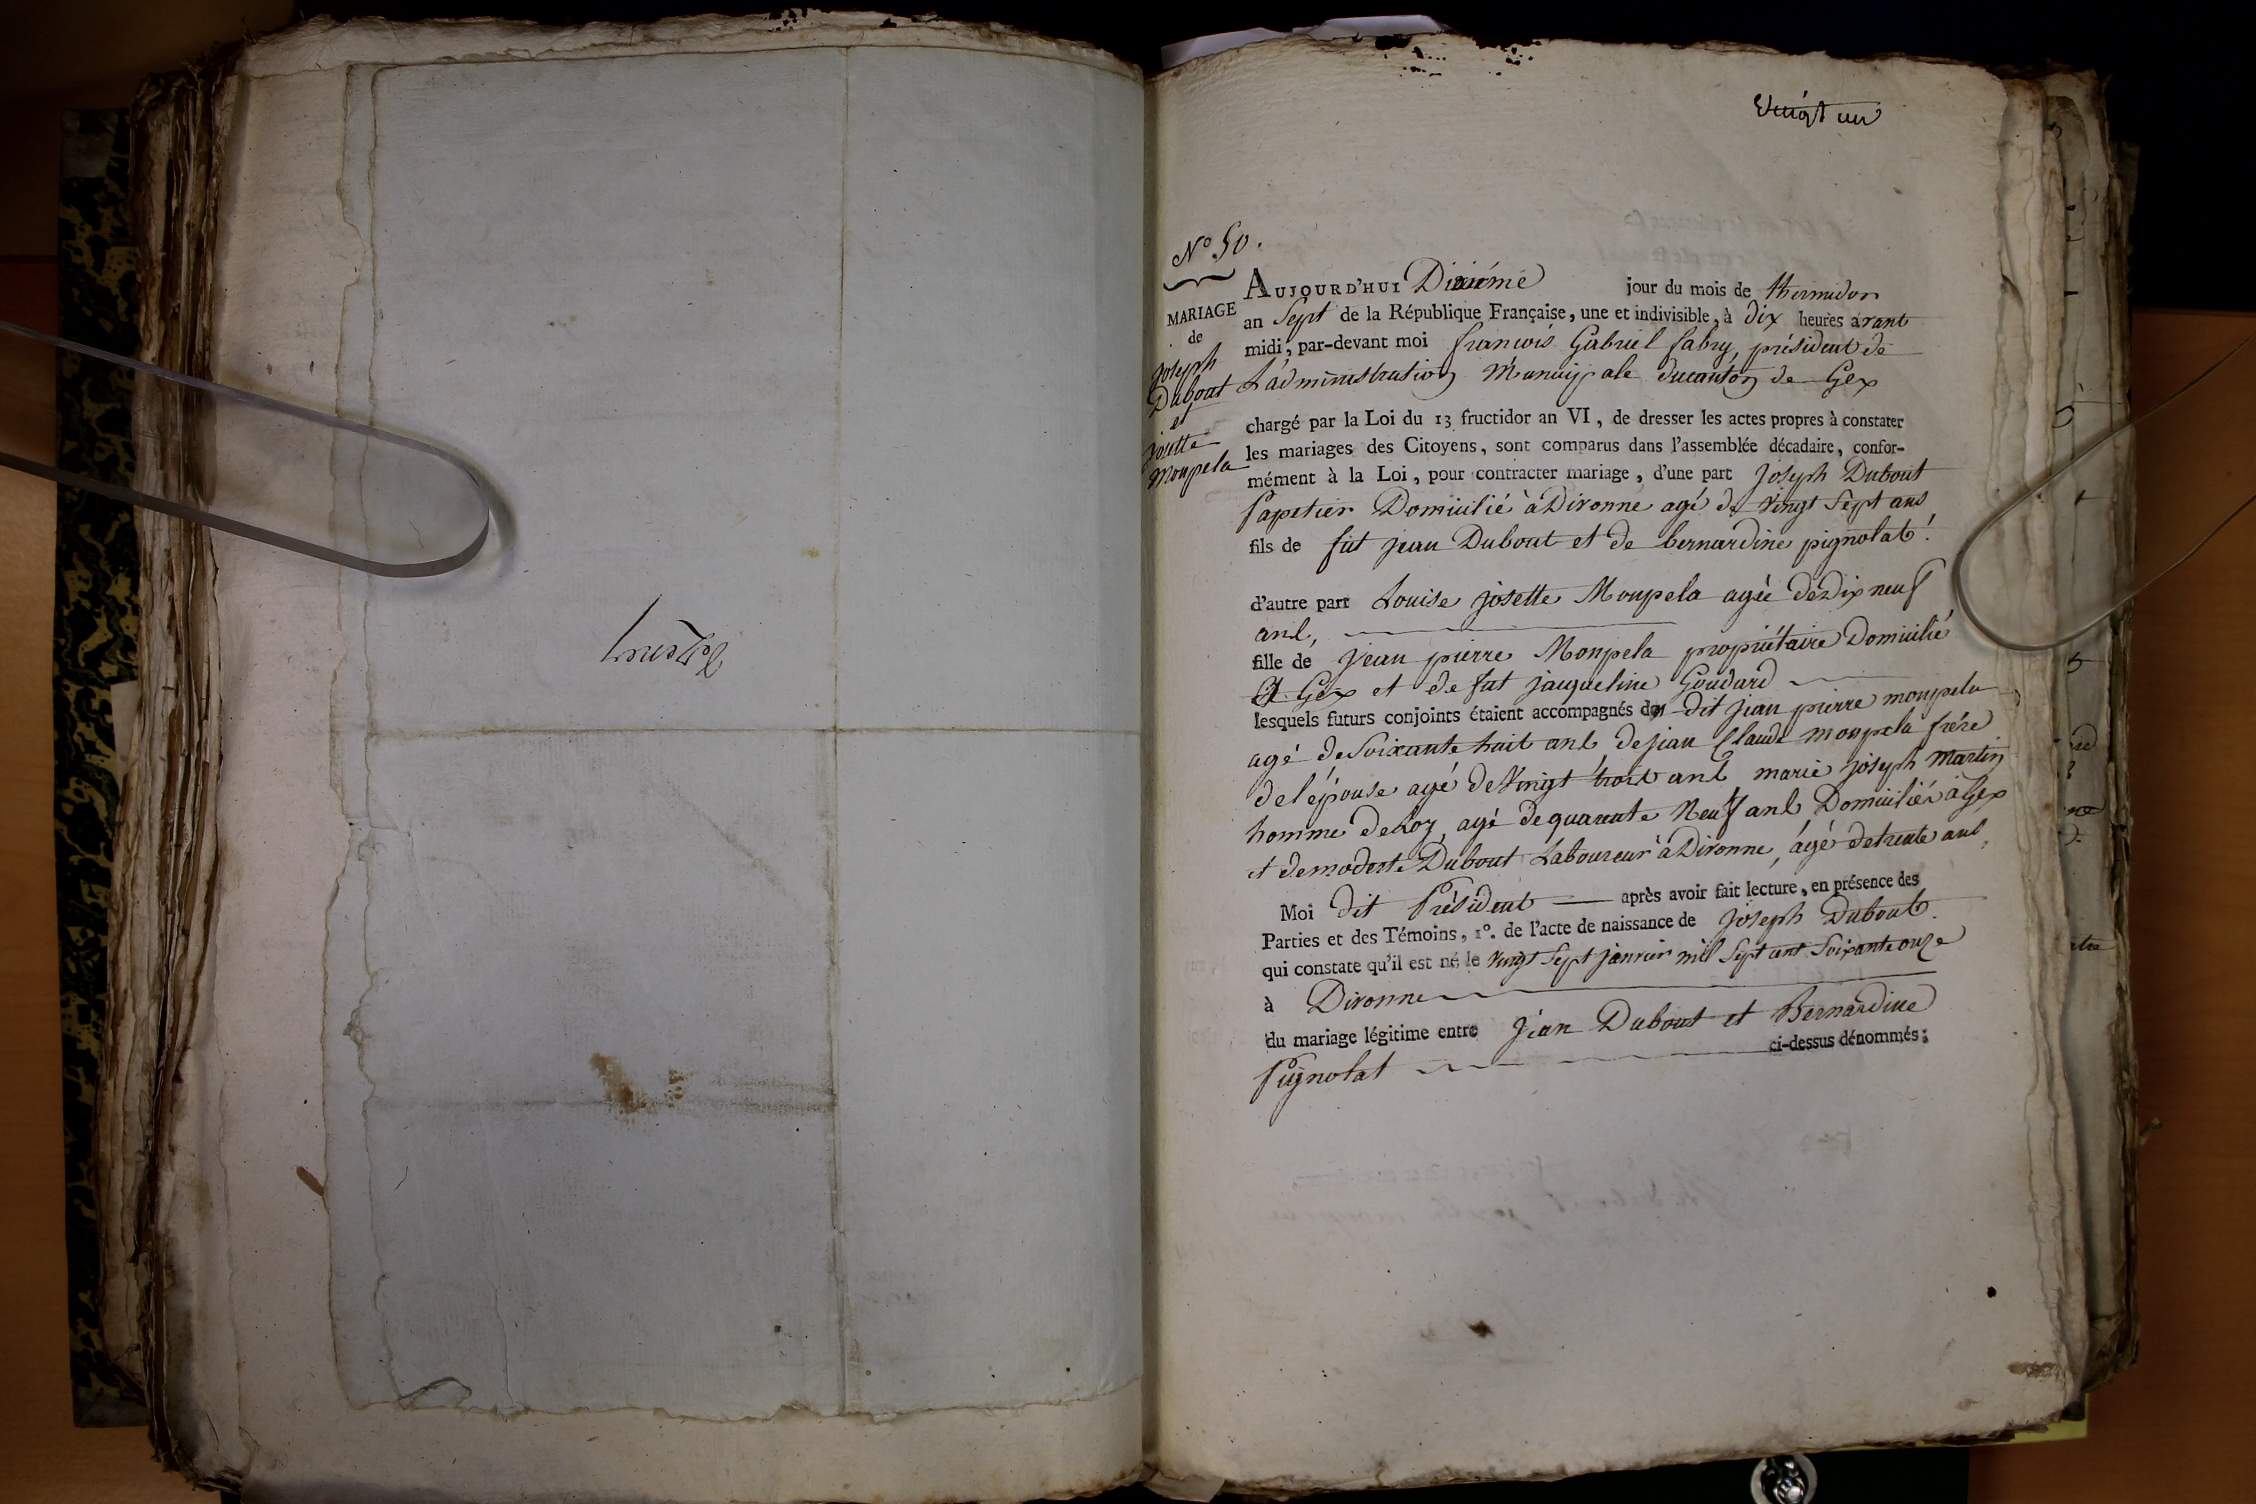 Vingt un
N° 50.
MARIAGE
de
Joseph
Dubout
et
Josette
Monpela
AUJOURD'HUI Dixiéme jour du mois de thermidor
an Sept de la République Française, une et indivisible, à dix heures avant
midi, par-devant moi francois Gabriel fabry, président de
L'administration Municipale du canton de Gex
chargé par la Loi du 13 fructidor an VI, de dresser les actes propres à constater
les mariages des Citoyens, sont comparus dans l'assemblée décadaire, confor-
mément à la Loi, pour contracter mariage, d'une part Joseph Dubout
Papetier Domicilié à Divonne agé de vingt Sept ans
fils de fut jean Dubout et de bernardine pignolat.
d'autre part Louise josette Monpela agée de Dix neuf
ans,
fille de jean pierre Monpela propriétaire Domicilié
A Gex et de fut jacqueline Goudard
lesquels futurs conjoints étaient accompagnés du dit jean pierre monpela
agé de Soixante huit ans de jean Claude monpela frére
de l'épouse agé de Vingt trois ans marie joseph Martin
homme de loy, agé de quarante Neuf ans Domiciliés à Gex
et de modeste Dubout Laboureur à Divonne, ágé de trente ans,
Moi dit Président après avoir fait lecture, en présence des
Parties et des Témoins, 1°. de l'acte de naissance de Joseph Dubout.
qui constate qu'il est né le vingt Sept janvier mil Sept cent Soixante onze
à Divonne
du mariage légitime entre jean Dubout et Bernardine
Pignolat ci-dessus dénommés;